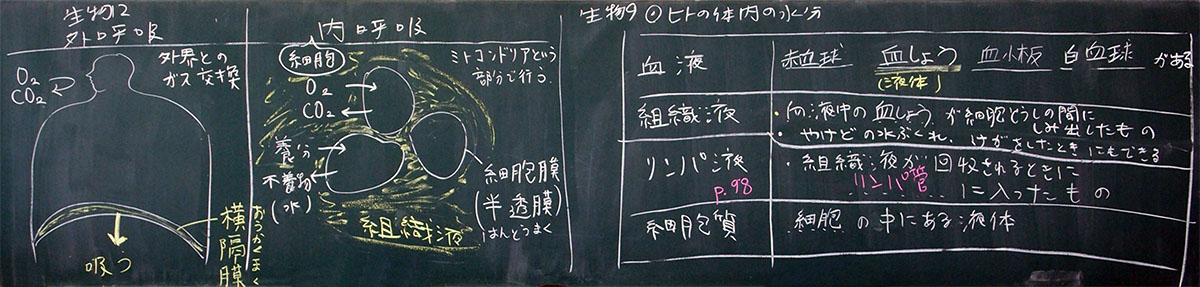 生物12
外呼吸
外界との
ガス交換
O₂
CO₂
吸う
横隔膜
おうかくまく
内呼吸
細胞
ミトコンドリアという
部分で行う.
O₂
CO₂
養分
不養物
(水)
細胞膜
(半透膜)
はんとうまく
組織液
生物9 ⊙ヒトの体内の水分
血液
赤血球 血しょう 血小板 白血球 がある
(液体)
組織液
・血液中の血しょうが細胞どうしの間に
しみ出したもの
・やけどの水ぶくれ、けがをしたときにもできる
リンパ液
p.98
・組織液が回収されるときに
リンパ管
に入ったもの
細胞質
細胞の中にある液体